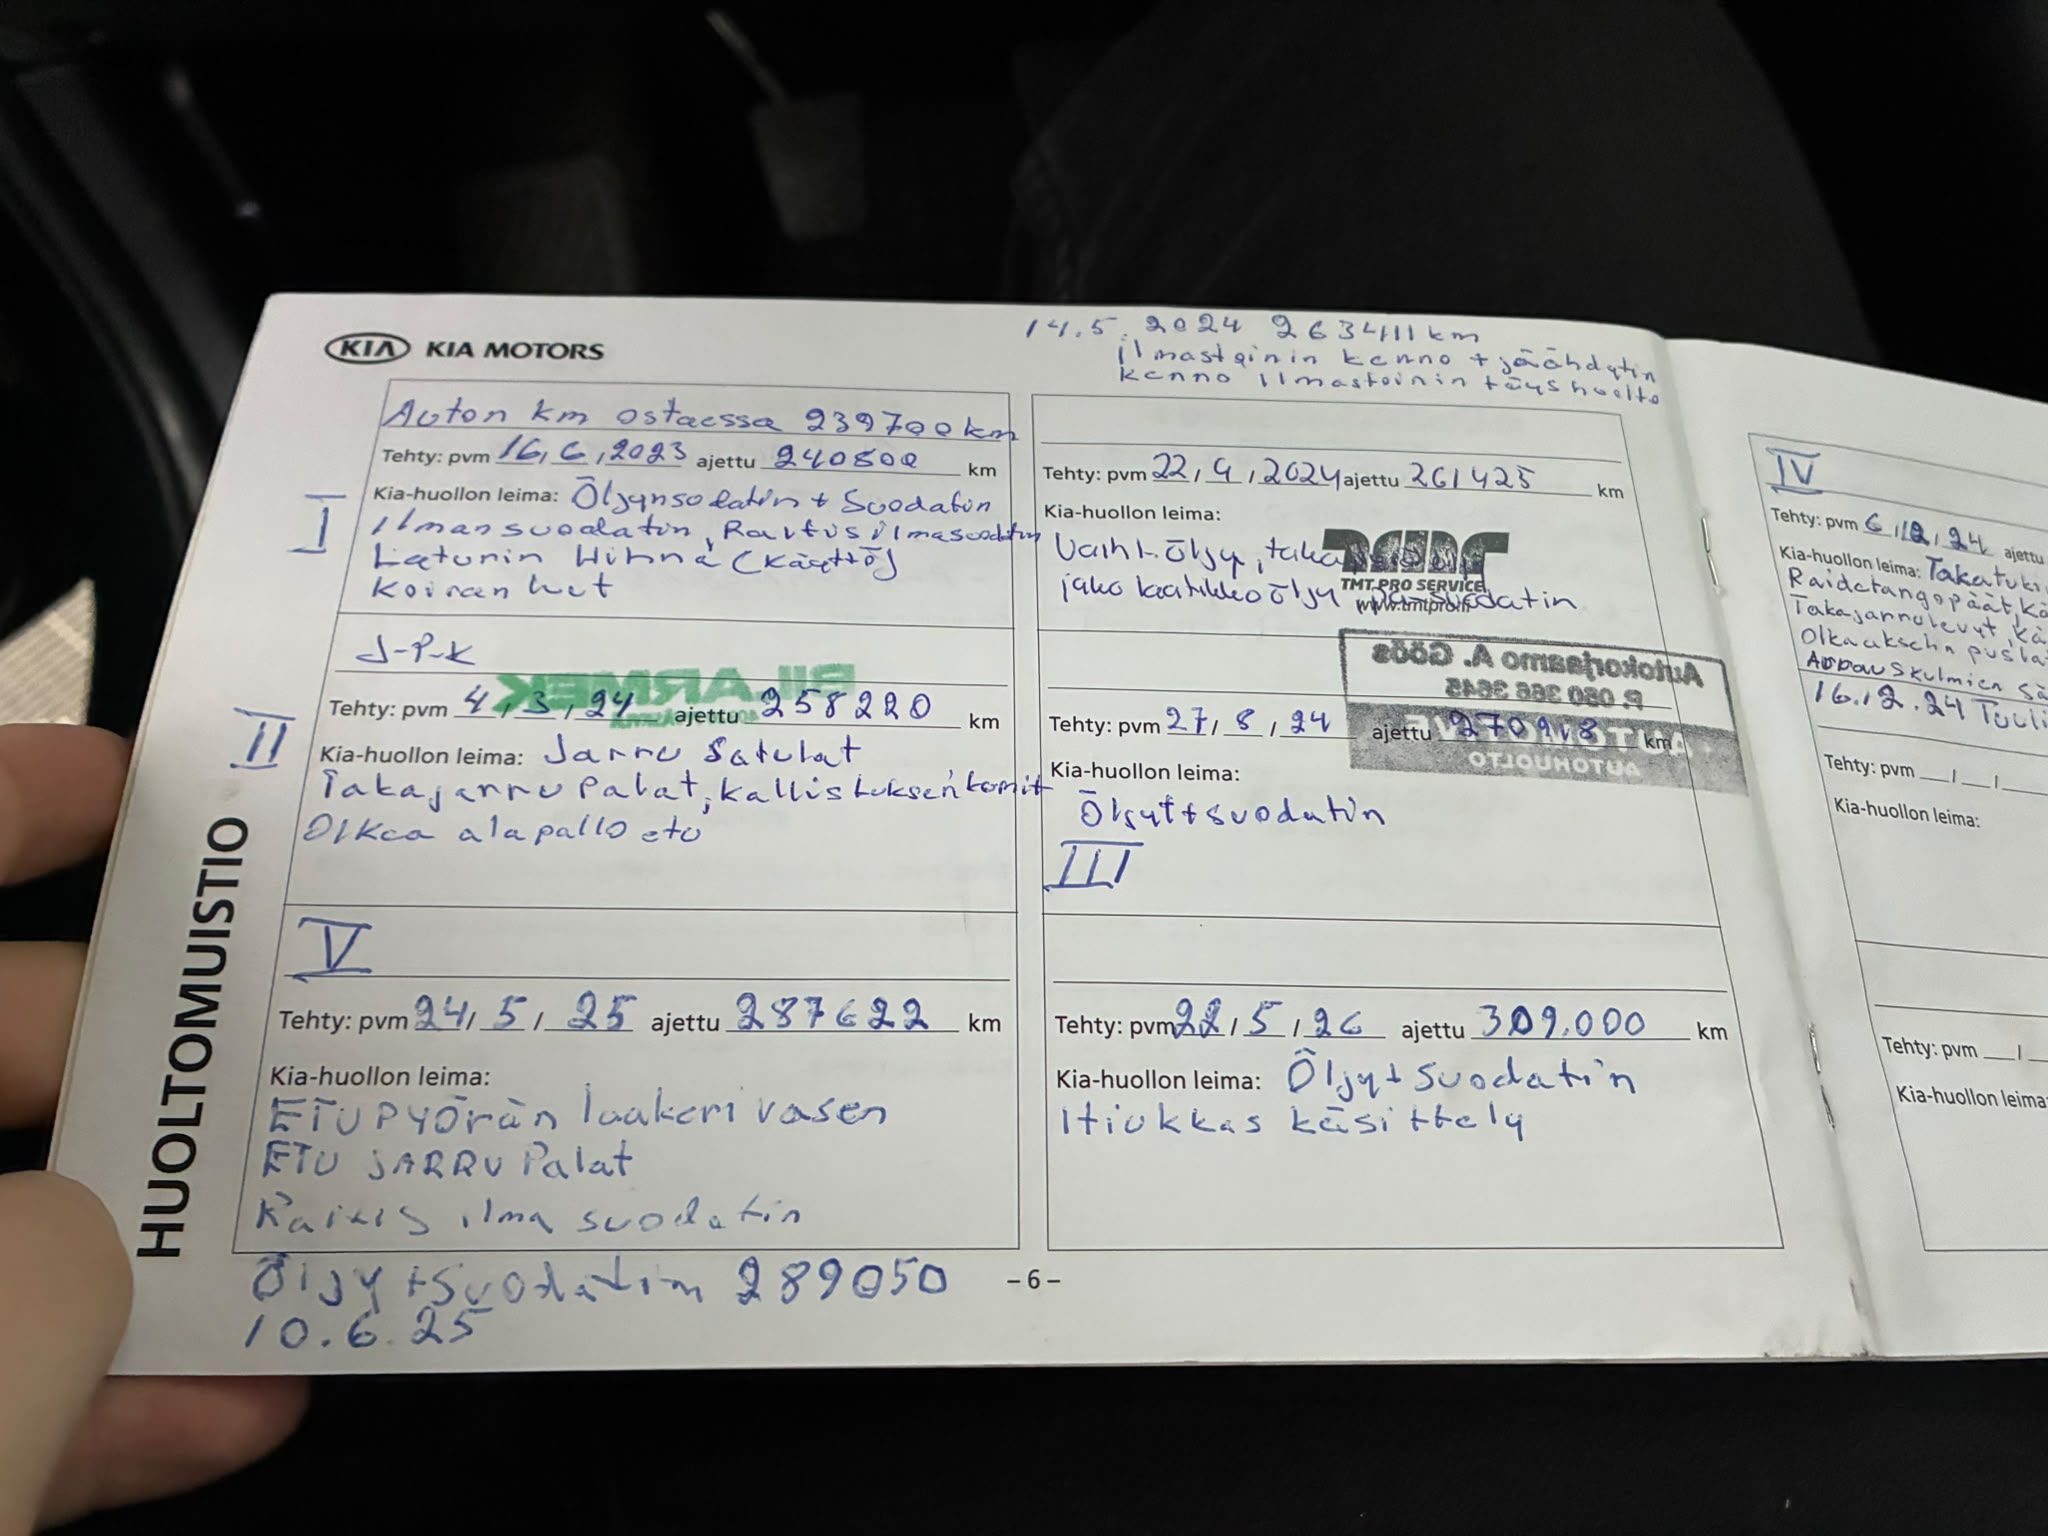 KIA KIA MOTORS
14.5.2024 263411 km
ilmastoinin kenno + jäähdytin
kenno ilmastoinin täyshuolto
HUOLTOMUISTIO
Auton km ostaessa 239700km
Tehty: pvm 16,6,2023 ajettu 240800 km
I
Kia-huollon leima: Öljynsodatin + Suodatin
Ilmansuodatin, Raitis ilmasuodatin
Laturin Hihna (Käyttö)
Koiran luut
J-P-K
BILARMEK
II
Tehty: pvm 4,3,24 ajettu 258220 km
Kia-huollon leima: Jarru Satulat
Takajarru Palat, kallistuksen
Olkaa alapallo etu
V
Tehty: pvm 24/5/25 ajettu 287622 km
Kia-huollon leima:
ETUPYÖRÄN laakeri vasen
ETU JARRU Palat
Raitis ilma suodatin
Öljy + suodatin 289050
10.6.25
Tehty: pvm 22,4,2024 ajettu 261425 km
Kia-huollon leima:
Vaiht. öljy, taka
TMT PRO SERVICE
www.tmtpro.fi
jako laatikko öljy
Autokorjaamo A. Göös
P. 050 366 3645
Tehty: pvm 27/8/24 ajettu 270918 km
AUTOHUOLTO
Kia-huollon leima:
Öljyt + suodatin
III
Tehty: pvm 22/5/26 ajettu 309.000 km
Kia-huollon leima: Öljy + Suodatin
Hiukkas käsittely
–6–
IV
Tehty: pvm 6,12,24 ajettu
Kia-huollon leima: Takatuki
Raidetangopäät, Kä
Takajarrulevyt, kä
Olkaukseln pusla
16.12.24 Tuuli
Tehty: pvm __/__/
Kia-huollon leima:
Tehty: pvm __/
Kia-huollon leima